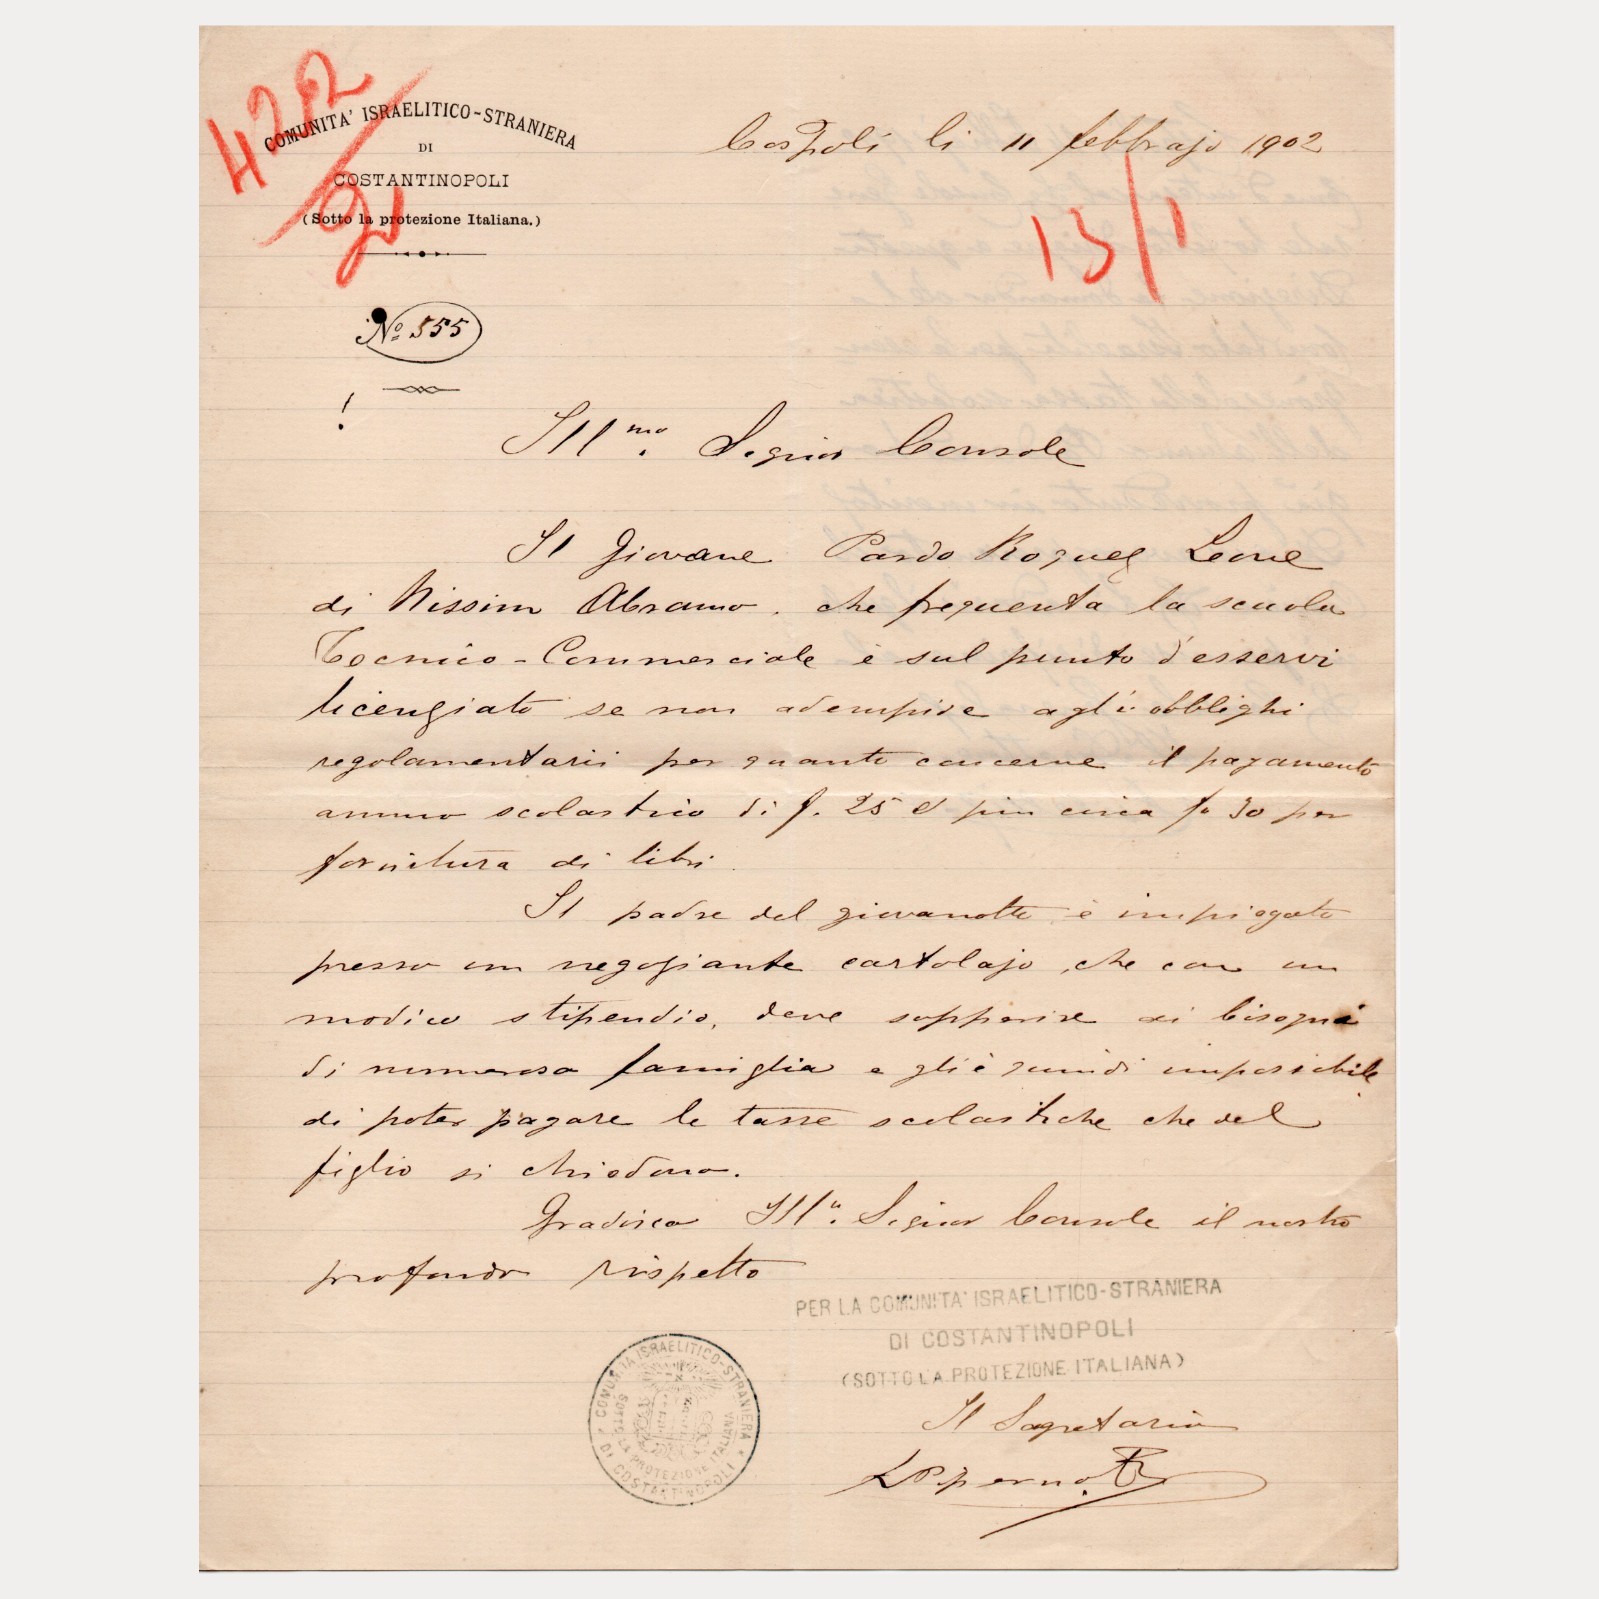 422/2
COMUNITA' ISRAELITICO-STRANIERA
DI
COSTANTINOPOLI
(Sotto la protezione Italiana.)
Cospoli li 11 febbrajo 1902
13/1
No 555
!
Ill.mo Signor Console
Il Giovane Pardo Roques Leone
di Nissim Abramo, che frequenta la scuola
Tecnico-Commerciale è sul punto d'esservi
licenziato se non adempise agli obblighi
regolamentarii per quanto concerne il pagamento
annuo scolastico di f. 25 e piu circa f. 30 per
fornitura di libri.
Il padre del giovanotto è impiegato
presso un negoziante cartolajo, che con un
modico stipendio, deve sopperire ai bisogni
di numerosa famiglia e gli è quindi impossibile
di poter pagare le tasse scolastiche che del
figlio si chiedono.
Gradisca Ill.o Signor Console il nostro
profondo rispetto
PER LA COMUNITA' ISRAELITICO-STRANIERA
DI COSTANTINOPOLI
(SOTTO LA PROTEZIONE ITALIANA)
Il Segretario
L Piperno
COMUNITA ISRAELITICO-STRANIERA DI COSTANTINOPOLI
SOTTO LA PROTEZIONE ITALIANA